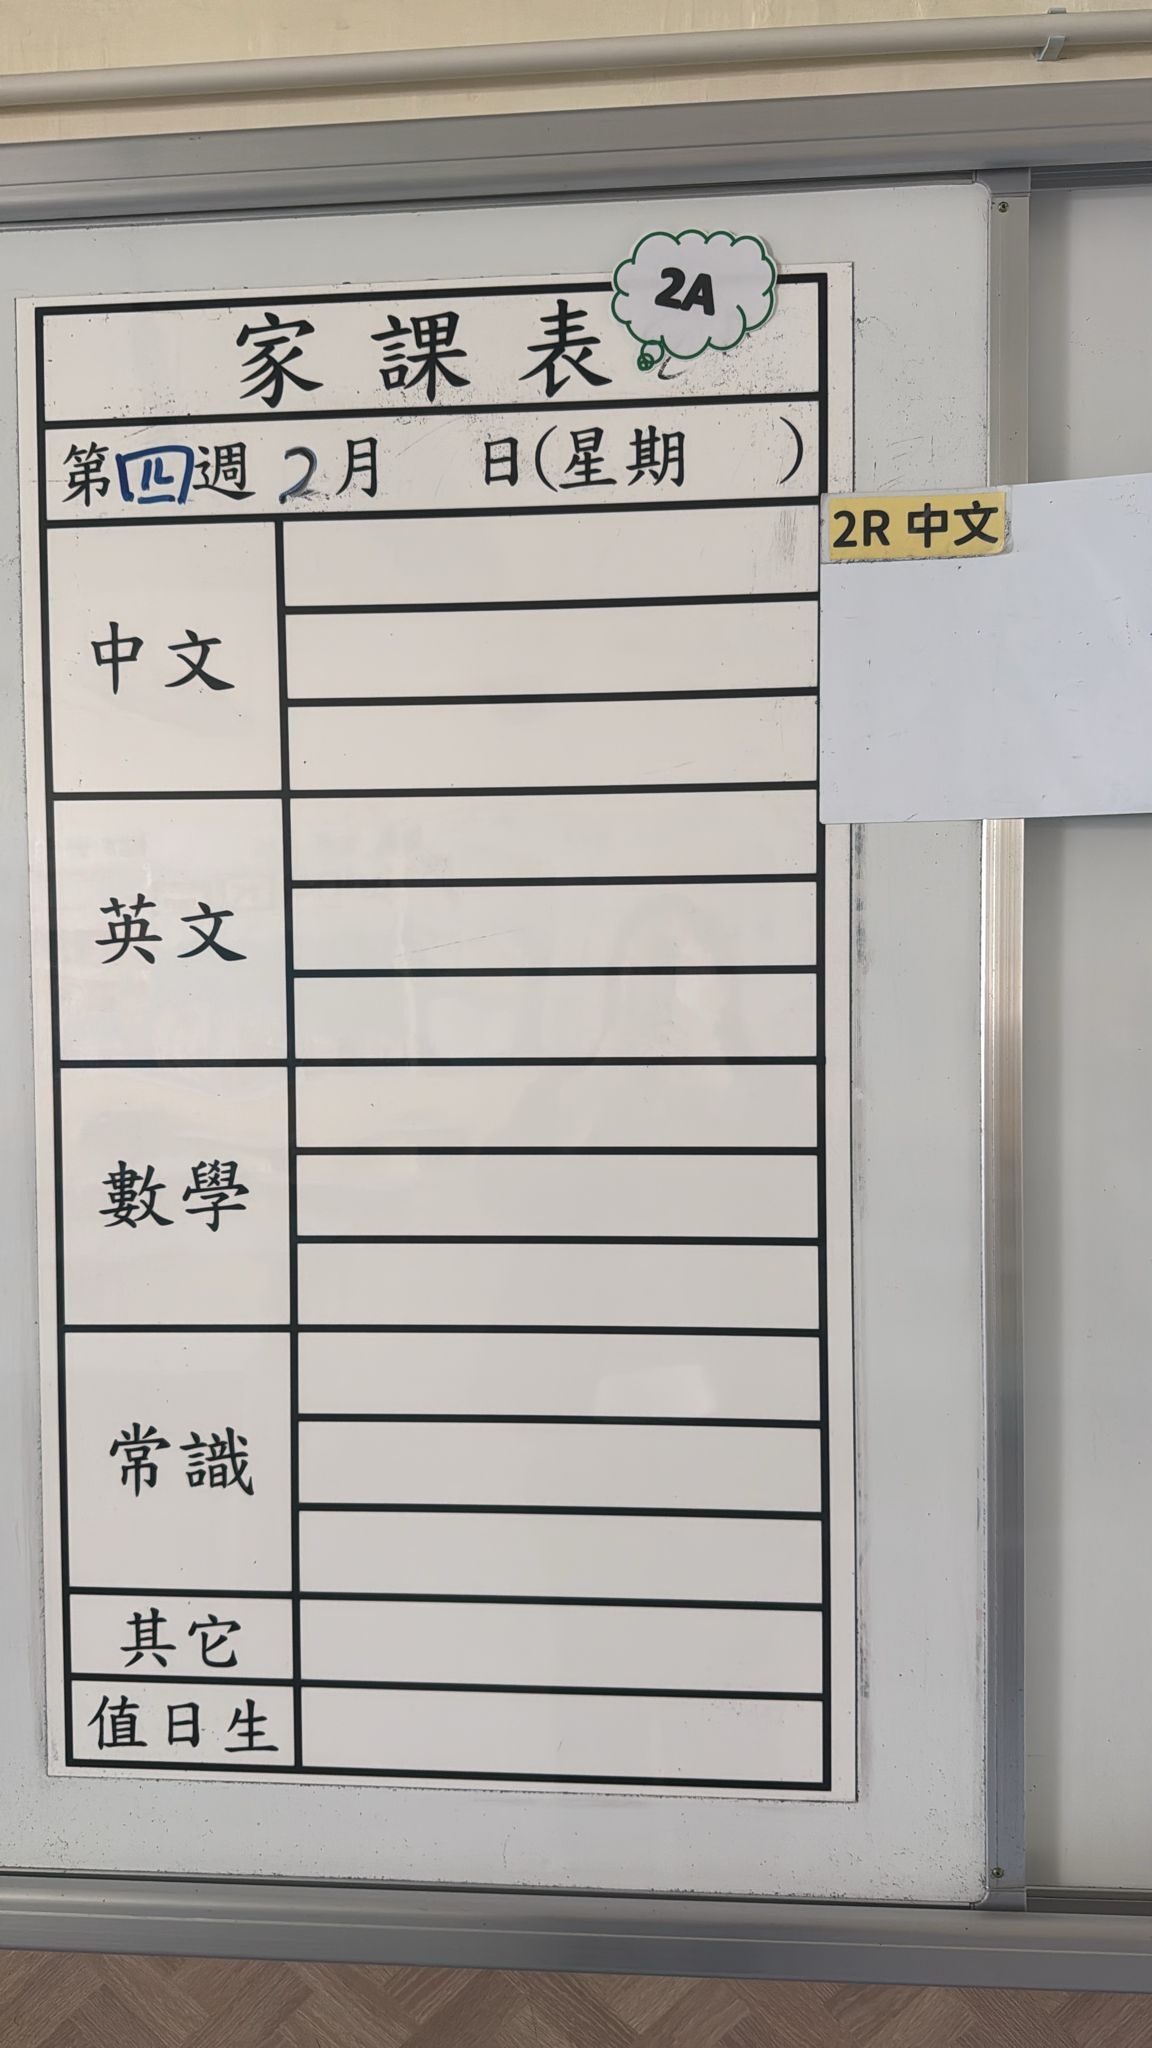 2A
家課表
第四週 2月 日(星期 )
2R 中文
中文
英文
數學
常識
其它
值日生